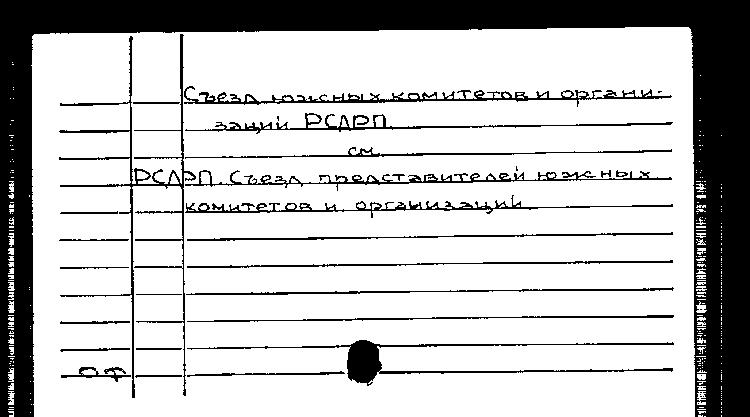 Съезд южных комитетов и органи-
заций РСДРП
см.
РСДРП. Съезд представителей южных
комитетов и организаций
ОФ